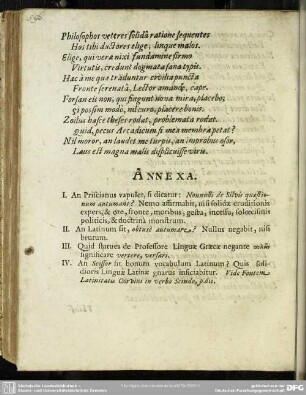 Philosophos veteres solidâ ratione sequentes
Hos tibi ductores elige, linque malos.
Elige, qui vera nixi fundamine firmo
Virtutis, credunt dogmata sana typis.
Hac à me quæ traduntur civilia puncta
Fronte serenatâ, Lector amande, cape.
Forsan eis non, qui pingunt nova mira, placebo;
si possim modo, mî curo, placere bonis.
Zoilus hasce theses rodat, problemata rodat.
quid, pecus Arcadicum si mea membra petat?
Nil moror, an laudet me turpis, an improbus osor,
Laus est magna malis displicuisse viris.
ANNEXA.
I. An Priscianus vapulet, si dicatur: Nonnulli de Silviis quæstionum
autumant? Nemo affirmabit, nisi solidæ eruditionis
expers, & ore, fronte, moribus, gestu, incessu, solœcismis
politicis, & doctrinâ monstrum.
II. An Latinum sit, obtusè autumare? Nullus negabit, nisi
brutum.
III. Quid statues de Professore Linguæ Græcæ negante
significare vertere, versari.
IV. An Scissor sit bonum vocabulum Latinum? Quis solidioris
Linguæ Latinæ gnarus inficiabitur. Vide Fontem
Latinitatis Corvini in verbo Scindo, p.